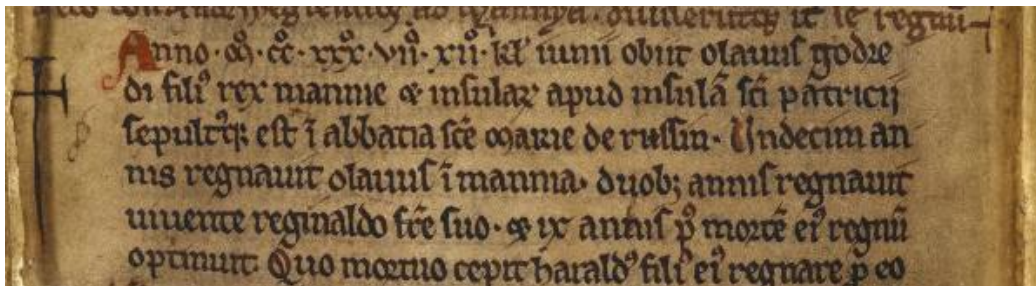 diuiseruntq; it ĩ se regnũ
Anno · ꝏ · cͦc · xxͦx · vıͦı · xıͦı · kł iunii obiit olauus godre
di filiꝰ rex mannie ⁊ insulaꝝ apud insulã sc̃i patricij
sepultꝰq; est ĩ abbatia sc̃e marie de russin · Undecim an
nis regnauit olauus ĩ mannia · duobꝫ annis regnauit
uiuente reginaldo fr̃e suo · ⁊ ix annis p̃ mortẽ eiꝰ regnũ
optinuit. Quo mortuo cepit haraldꝰ filiꝰ eiꝰ regnare ꝑ eo